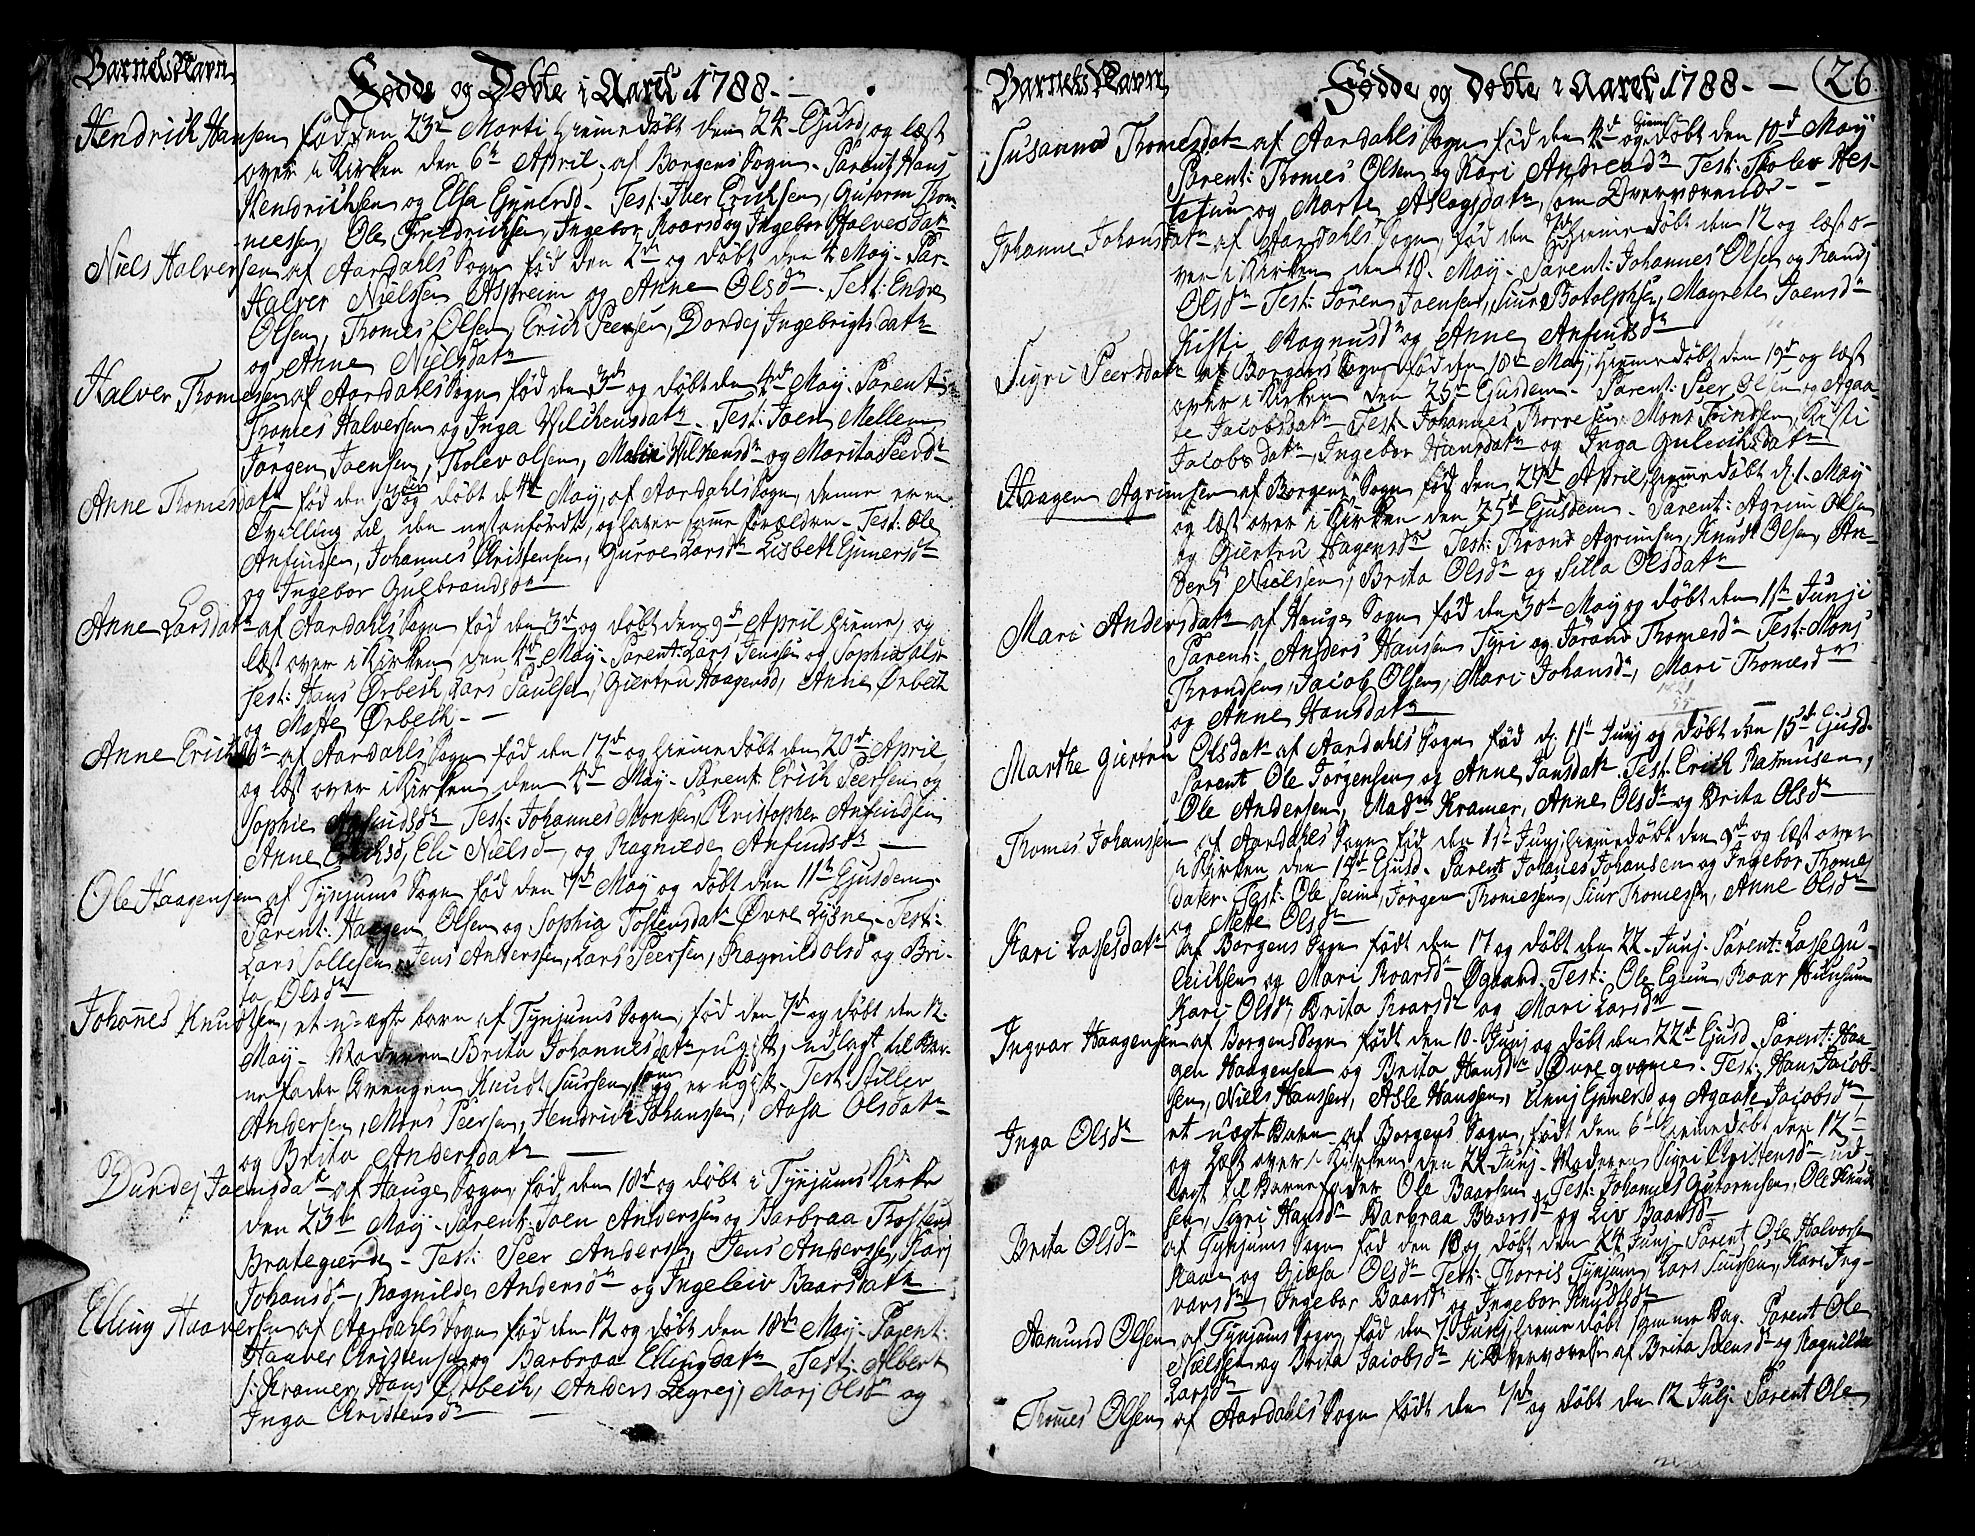 Barnets Navn
Födde og Döbte i Aaret 1788.
Hendrich Hansen föd den 23de Marti hiemedöbt den 24. Ejusd. og læst
over i Kirken den 6te April, af Borgens Sogn. Parent: Hans
Hendrichsen og Elsa Gunersd. Test: Iver Erichsen, Guttorm Thom-
nessen, Ole Fredrichsen, Ingebor Roarsd og Ingebor Halversdatr
Niels Halversen af Aardahls Sogn föd den 2den og döbt den 4 May. Par-
Halver Nielssen Asperim og Anne Olsdr. Test: Endre
Olsen, Thomes Olsen, Erich Peersen, Dordej Ingebrigtsdatr
og Anne Nielsdatr
Halver Thomesen af Aardahls Sogn föd den 3de og döbt den 4de May. Parent:
Thomes Halversen og Inga Wilchensdatr. Test: Joen Mellem
Jörgen Joensen, Tholev olsen, Malin Wilkensdr og Marita Peersdr
Anne Thomesdatr föd den 3 og döbt d 4de May, af Aardahls Sogn, denne er en
Tvilling til den nestanfördte, og haver samme forældre. Test: Ole
Anfindsen, Johannes Christensen, Guroe Larsdr Lisbeth Gunersdr
og Ingebor Gulbrandsdr
Anne Larsdatr af Aardahls Sogn, föd den 3de og döbt den 9de April hieme, og
læst over i Kirken den 4de May. Parent: Lars Jenssen og Sophia Olsdr
Test: Hans Örbech, Lars Paulsen, Giertru Haagensd, Anne Örbech
og Mette Örbech.
Anne Erichsdr af Aardahls Sogn föd den 17de og hiemedöbt den 20de April,
og læst over i Kirken den 4de May. Parent: Erich Peersen og
Sophie Anfindsdr Test: Johannes Monsen, Christopher Anfindsen
Anne Erichsd, Eli Nielsd og Ragnilde Anfindsdr
Ole Haagensen af Tynjums Sogn föd den 7de May og döbt den 11te Ejusdem.
Parent: Haagen Olsen og Sophia Tostensdatr Övre Lysne. Test:
Lars Sollesen, Jens Anderssen, Lars Peersen, Ragnild olsd og Bri-
ta Olsdr
Johannes Knudtsen, et u-ægte barn af Tynjums Sogn, föd den 7de og döbt den 12.
May. Moderen Brita Johannesdatr, ugift, udlagt til Bar-
nefader Drengen Knudt Siursen, som og er ugift. Test: Stillev
Andersen, Mons Peersen, Hendrich Johansen, Aasa Olsdatr
og Brita Andersdatr
Dundej Joensdatr af Hauge Sogn, föd den 18de og döbt i Tynjums Kirke
den 23de May. Parent: Joen Anderssen og Barbraa Thostensd
Brategierde. Test: Peer Anderssen, Jens Anderssen, Karj
Johansdr, Ragnilde Andersdr og Ingeleiv Baarsdatr
Elling Haaversen af Aardahls Sogn föd den 12 og döbt den 18de May. Parent:
Haaver Christensen og Barbraa Ellingsdatr Test: Albert
S. Kramer, Hans Örbech, Anders Legrej, Marj Olsdr og
Inga Christensdr
Barnets Navn
Födde og Döbte i Aaret 1788.
26
Susanna Thomesdatr af Aardahls Sogn föd den 4de og hieme döbt den 10de May
Parent: Thomes Olsen og Kari Andreasdr Test: Tholev Hes-
tetun og Marte Aslagsdatr, som Overværende
Johanne Johansdatr af Aardahls Sogn, föd den hiemedöbt den 12 og læst o-
ver i Kirken den 18. May. Parent: Johannes Olsen og Randj
Olsdr Test: Jören Joensen, Siur Botolphsen, Magrete Joensdr
Kisti Magnusdr og Anne Anfindsdr
Sigri Peersdatr af Borgens Sogn föd den 18de May, hiemedöbt den 19de og læst
over i Kirken den 25de Ejusdem. Parent: Peer Olsen og Agaa-
te Jacobsdatr Test: Johannes Thorresen, Mons Troindsen, Kisti
Jacobsdatr, Ingebor Hansdatr og Inga Gulechsdatr
Haagen Agrimsen af Borgens Sogn föd den 27de April, hiemedöbt d. 1. May
og læst over i Kirken den 25de Ejusdem. Parent: Agrim Olsen
og Giertru Hagensdr Test: Thrond Agrimsen, Knudt Olsen, An-
ders Nielssen, Brita Olsdr og Silla Olsdatr
Mari Andersdatr af Hauge Sogn föd den 30te May og döbt den 11te Junji
Parent: Anders Hansen Tyri og Jörand Thomesdr Test: Mons
Throndsen, Jacob Olsen, Mari Johansdr, Mari Thomesdr
og Anne Hansdatr
Marthe Giertru Olsdatr af Aardahls Sogn föd d. 11te Junj og döbt den 15de Ejusd.
Parent Ole Jörgensen og Anne Jansdatr. Test. Erich Rasmusen,
Ole Andersen, Madm Kramer, Anne Olsdr og Brita Olsdr
Thomes Johansen af Aardahls Sogn föd den 1ste Junj, hiemedöbt den 9de og læst over
i Kirken den 15de Ejusd. Parent Johannes Johansen og Ingebor Thomes
dater. Test: Ole Seim, Jörgen Thomesen, Siur Thomessen, Anne Olsdr
og Mette Olsdr
Kari Lassesdatr af Borgens Sogn födt den 17 og döbt den 22. Junj. Parent: Lasse Gu-
leichsen og Mari Roarsdr Ögaard. Test: Ole Egum, Roar
Kari Olsdr, Brita Roarsdr og Mari Larsdr
Ingvar Haagensen af Borgens Sogn födt den 10. Junj og döbt den 22de Ejusd. Parent: Haa-
gen Haagensen og Brita Hansdr Övre qvame. Test: Hans Jacob-
sen, Niels Hanssen, Asle Hanssen, Unnj Gunersd og Agaate Jacobsdr
Inga Olsdr et uægt Barn af Borgens Sogn, födt den 6te hiemedöbt den 12
og læst over i Kirken den 22 Junj. Moderen Sigri Christensdr ud-
lagt til Barnefader Ole Baarsen. Test: Johannes Gutormsen, Ole Knudt
sen, Sigri Hansdr Barbraa Baarsdr og Liv Baarsdr
Brita Olsdr af Tynjums Sogn föd den 18 og döbt den 24 Junj. Parent Ole Halvorsen
Naae og Gioa Olsdr Test: Thorris Tynjum, Lars Siursen, Kari Ing-
varsdr, Ingebor Baarsdr og Ingebor Knudtsdr
Aamund Olsen af Tynjums Sogn, föd den 7 Junj, hiemedöbt samme Dag. Parent Ole
Nielsen og Brita Jacobsdr i Overværelse af Brita Joensdr og Ragnilde
Larsdr
Thomes Olsen af Aardahls Sogn födt den 7de og döbt den 12 Julj. Parent Ole